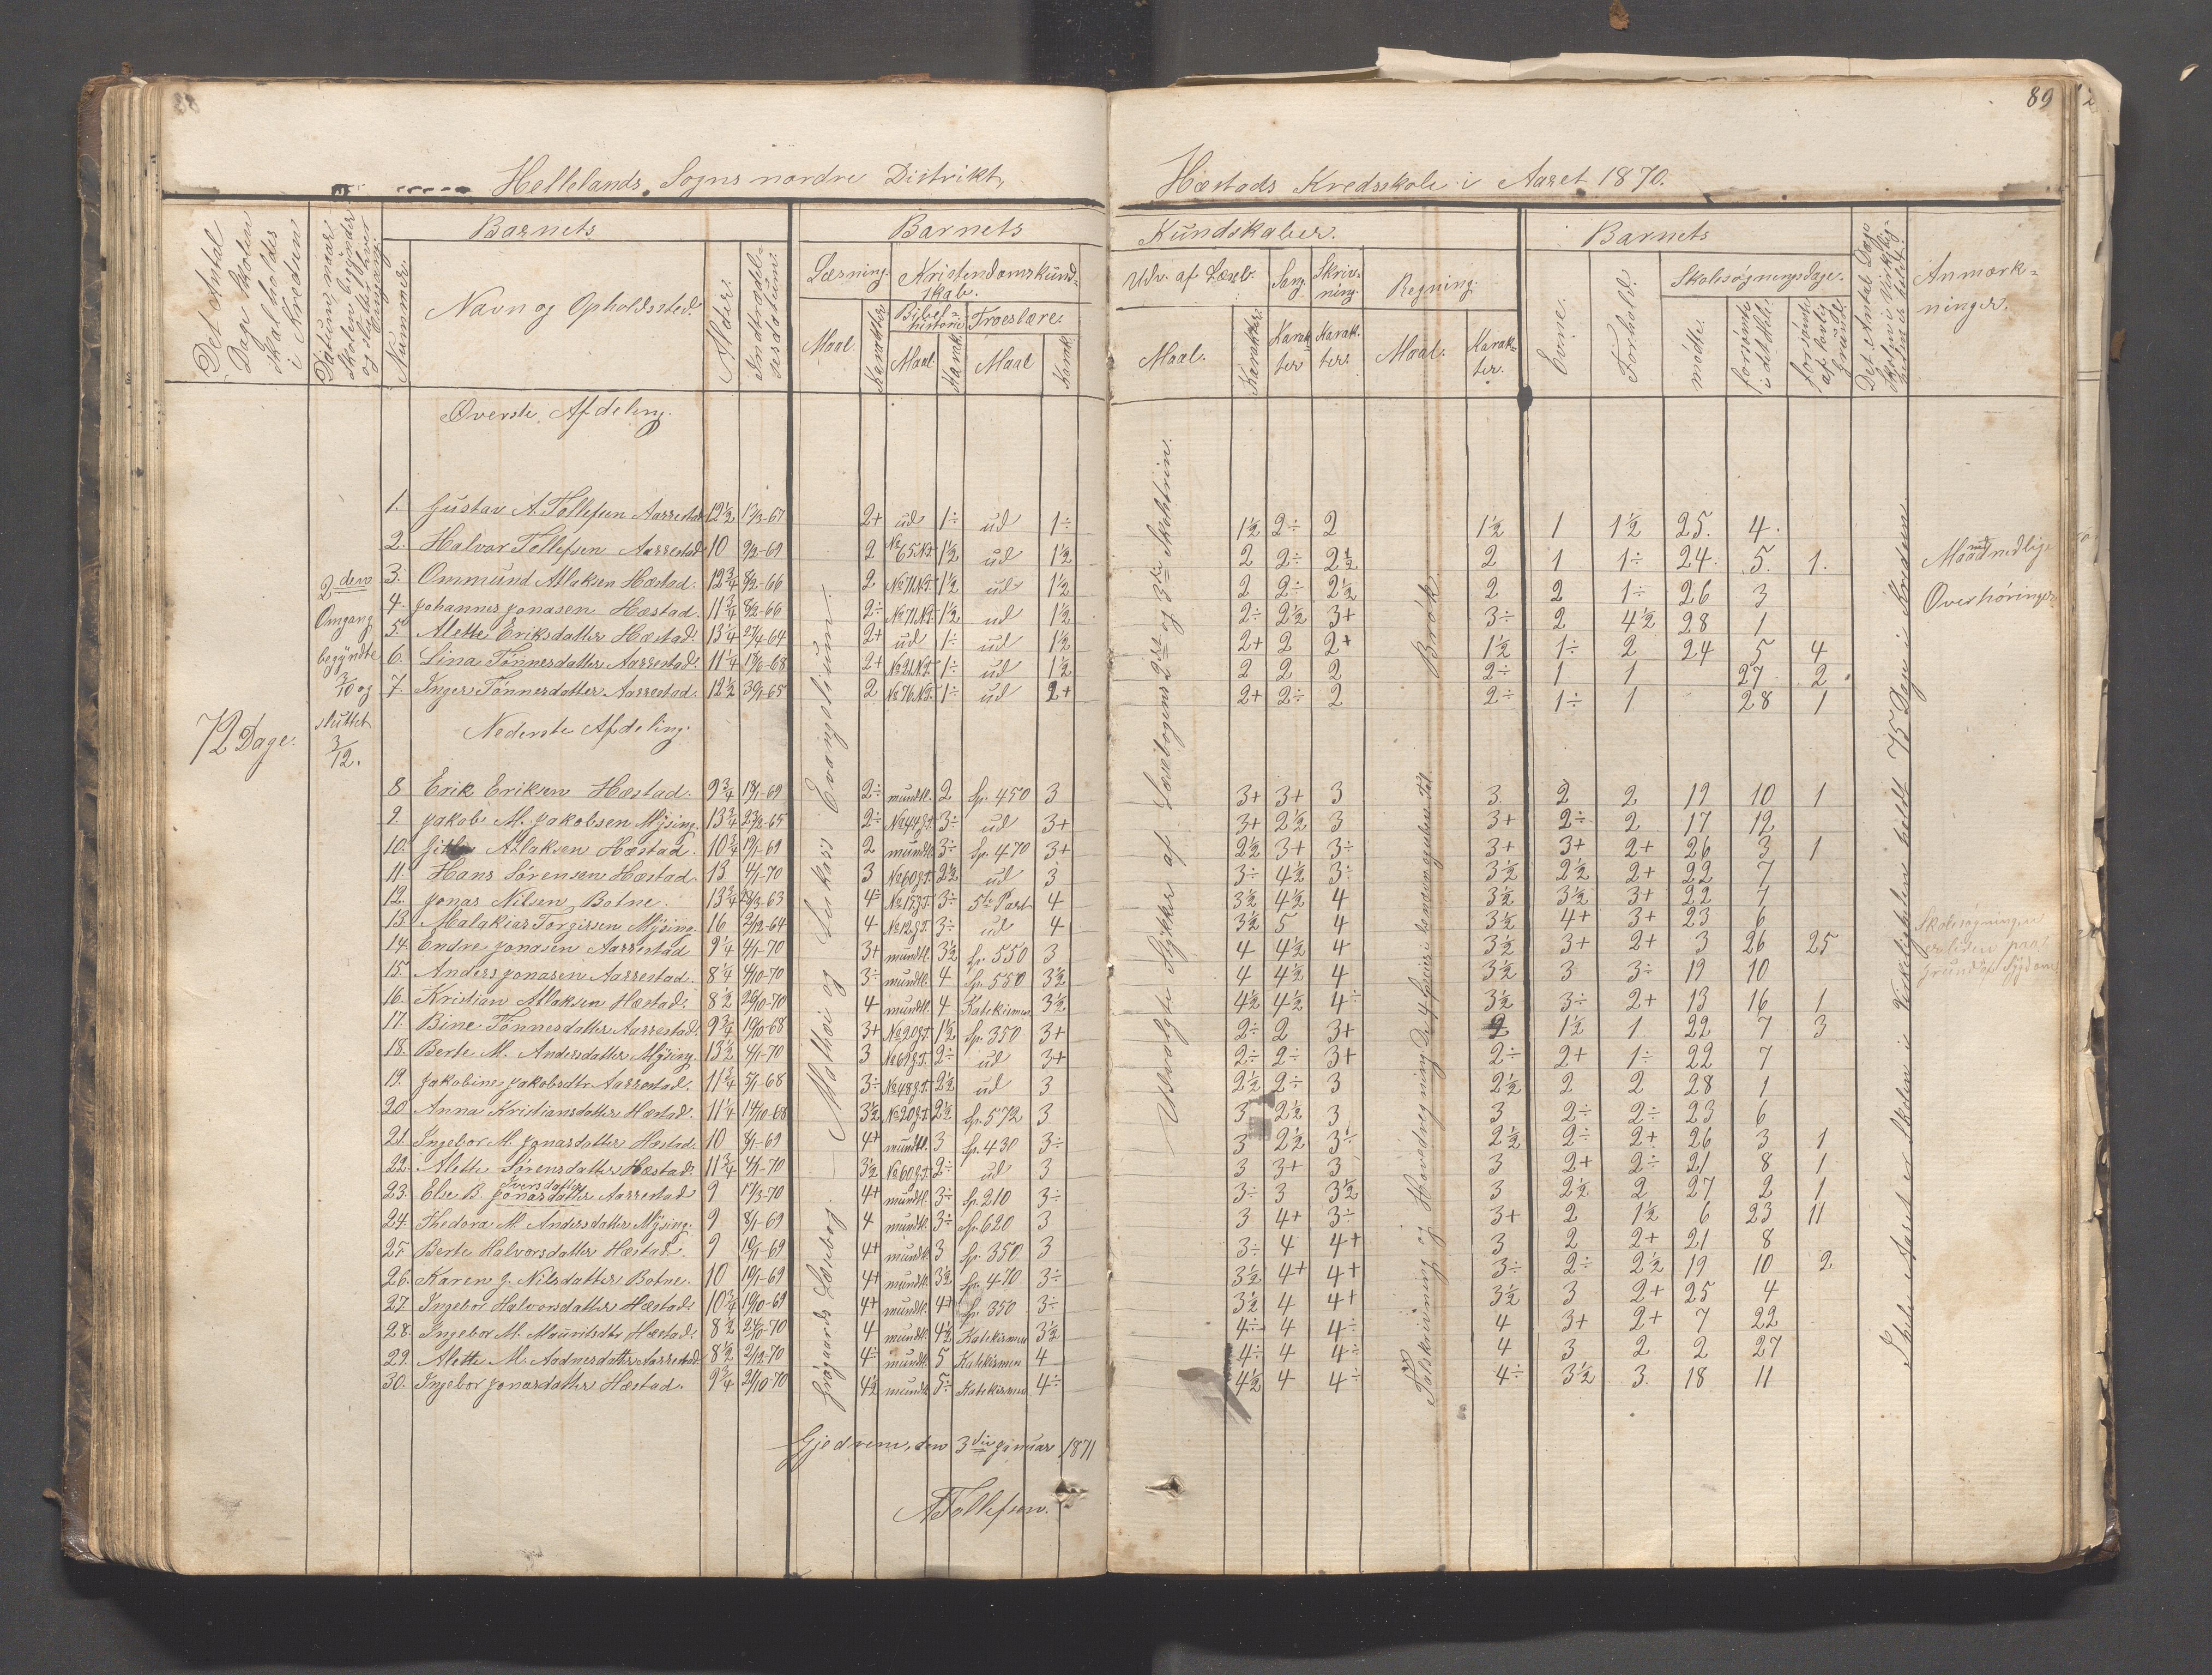 89
Hellelands Sogns nordre Distrikt,
Hæstads Kredsskole i Aaret 1870.
Det Antal Dage Skolen skal holdes i Kredsen
Datum, naar Skolen begynder og slutter hver Omgang.
Barnets
Nummer.
Navn og Opholdssted.
Alder.
Indtrædelsesdatum.
Barnets
Læsning.
Kristendomskundskab.
Bibelhistorie
Troeslære.
Maal.
Karakter.
Maal.
Karak.
Maal
Karak.
Kundskaber.
Udv. af Læseb.
Sang.
Skrivning.
Regning.
Maal.
Karakter.
Karakter
Karakter
Maal.
Karakter.
Barnets
Evne.
Forhold.
Skolesøgningsdage.
mødte.
forsømte i det Hele.
forsømte af lovlig Grund.
Det Antal Dage Skolen i Virkeligheden er holdt.
Anmærkninger.
72 Dage.
2den Omgang begyndte 3/10 og sluttet 3/12.
Øverste Afdeling.
1. Gustav A. Tollefsen Aarrestad 12½ 17/3-67 2+ ud 1÷ ud 1÷ 1½ 2÷ 2 1½ 1 1½ 25. 4.
2. Halvor Tollefsen Aarrestad 10 9/2-69 2 No 65 N.T. 1½ ud 1½ 2 2÷ 2½ 2 1 1÷ 24. 5. 1.
3. Ommund Atlaksen Hæstad. 12¾ 8/2-66 2 No 71 N.T. 1½ ud 1½ 2 2÷ 2½ 2 2 1÷ 26 3
4. Johannes Jonasen Hæstad. 11¾ 8/2-66 2÷ No 71 N.T. 1½ ud 1½ 2÷ 2½ 3+ 3÷ 2 4½ 28 1
5. Alette Eriksdatter Hæstad. 13¼ 27/4-64 2+ ud 1÷ ud 1½ 2+ 2 2+ 1½ 1÷ 2 24 5 4
6. Lina Tønnesdatter Aarrestad. 11¼ 2+ No 21 N.T. 1÷ ud 1½ 2 2 2 2÷ 1 1 27 2
7. Inger Tønnesdatter Aarrestad. 12½ 30/1-65 2 No 76 N.T. 1÷ ud 2+ 2+ 2÷ 2 2÷ 1÷ 1 28 1
Nederste Afdeling.
8 Erik Eriksen Hæstad. 9¾ 2÷ mundtl. 2 Sp. 450 3 3+ 3+ 3 3. 2 2 19 10 1
9. Jakob M. Jakobsen Mysing. 13¾ 2÷ No 44 G.T. 3÷ ud 3+ 3+ 2½ 3 3+ 2÷ 2 17 12
10. Atlaksen Hæstad. 10¾ 19/1-69 2 mundtl. 3÷ Sp. 470 3+ 2½ 3+ 3÷ 3+ 3+ 2+ 26 3 1
11. Hans Sørensen Hæstad 13 4/1-70 3 No 60 G.T. 2½ ud 3 3÷ 4½ 3÷ 3½ 2½ 2+ 22 7
12. Jonas Nilsen Botne. 13¾ 4÷ No 15 G.T. 3÷ 5te Part 4 3½ 4½ 4 3½ 3½ 3+ 22 7
13. Malakias Torgersen Mysing. 16 2/12-64 4 No 12 G.T. 3÷ ud 4 3½ 5 4 3½ 4+ 3+ 23 6
14. Endre Jonasen Aarrestad 9¼ 4/1-70 3+ mundtl. 3½ Sp. 550 3 4 4½ 4 3½ 3+ 2+ 3 26 25
15. Anders Jonasen Aarrestad. 8¼ 4/10-70 3÷ mundtl. 4 Sp. 550 3½ 4 4½ 4 3½ 3 3÷ 19 10
16. Kristian Atlaksen Hæstad. 8½ 26/10-70 4 mundtl. 4 Katekismen 3½ 4½ 4½ 4÷ 3½ 3÷ 2+ 13 16 1
17. Bine Tønnesdatter Aarrestad. 9¾ 19/10-68 3+ No 20 G.T. 1½ Sp. 350 3+ 2÷ 2 3+ 2 1½ 1 22 7 3
18. Berte M. Andersdatter Mysing. 13½ 4/1-70 3 No 69 G.T. 2÷ ud 3+ 2÷ 2÷ 3+ 2÷ 2+ 1÷ 22 7
19. Jakobine Jakobsdtr. Aarrestad. 11¾ 5/1-68 3÷ No 48 G.T. 2½ ud 3 2½ 2÷ 3 2½ 2 2 28 1
20. Anna Kristiansdatter Hæstad. 11¼ 14/10-68 3½ No 20 G.T. 2½ Sp. 572 3 3 2½ 3 3 2÷ 2÷ 23 6
21. Ingebor M. Jonasdatter Hæstad. 10 8/1-69 4+ mundtl. 3 Sp. 430 3÷ 3 2½ 3÷ 2½ 2÷ 2+ 26 3 1
22. Alette Sørensdatter Hæstad. 11¾ 4/1-70 3½ No 60 G.T. 2÷ ud 3 3 3+ 3 3 2+ 2÷ 21 8 1
23. Else B. Jonasdatter Iversdatter Aarrestad 9 17/3-70 4+ mundtl. 3÷ Sp. 210 3÷ 3÷ 3 3½ 3 2½ 2 27 2 1
24. Thedora M. Andersdatter Mysing. 9 8/1-69 4 mundtl. 3÷ Sp. 620 3 3 4+ 3÷ 3+ 2 1½ 6 23 11
25. Berte Halvorsdatter Hæstad. 9 19/1-69 4+ mundtl. 3 Sp. 350 3 3÷ 4 4+ 3 2 2+ 21 8
26. Karen G. Nilsdatter Botne. 10 19/1-69 4+ mundtl. 3½ Sp. 470 3÷ 3½ 4+ 4+ 3÷ 2÷ 2½ 19 10 2
27. Ingebor Halvorsdatter Hæstad. 10¾ 19/10-69 4+ mundtl. 4+ Sp. 350 3÷ 3½ 4 4+ 3½ 3 2+ 25 4
28. Ingebor M. Mauritsdtr. Hæstad. 8½ 24/10-70 4 mundtl. 4½ Katekismen 3½ 4÷ 4 4÷ 4 3+ 2+ 7 22
29. Alette M. Aadnesdatter Aarrestad 8½ 2/12-70 4÷ mundtl. 5 Katekismen 4 4÷ 4 4÷ 4 3 2 2 27
30. Ingebor Jonasdatter Hæstad. 9¾ 21/10-70 4½ mundtl. 5÷ Katekismen 4÷ 4½ 4 4÷ 4÷ 3½ 3. 18 11
Mattæi og Lukas's Evangelium.
Læsebog.
Udvalgte Stykker af Læsebogens 2det og 3die Skoletrin.
Brøk
Talskrivning og Hovedregning. De 4 Specier i benævnte Tal.
I hele Aaret er Skolen i Virkeligheden holdt 75 Dage i Kredsen.
Maanedlige
Overhøringer
Skolesøgningen
Grund af Sygdom
Gjedrem, den 3die Januar 1871
A Tollefsen.